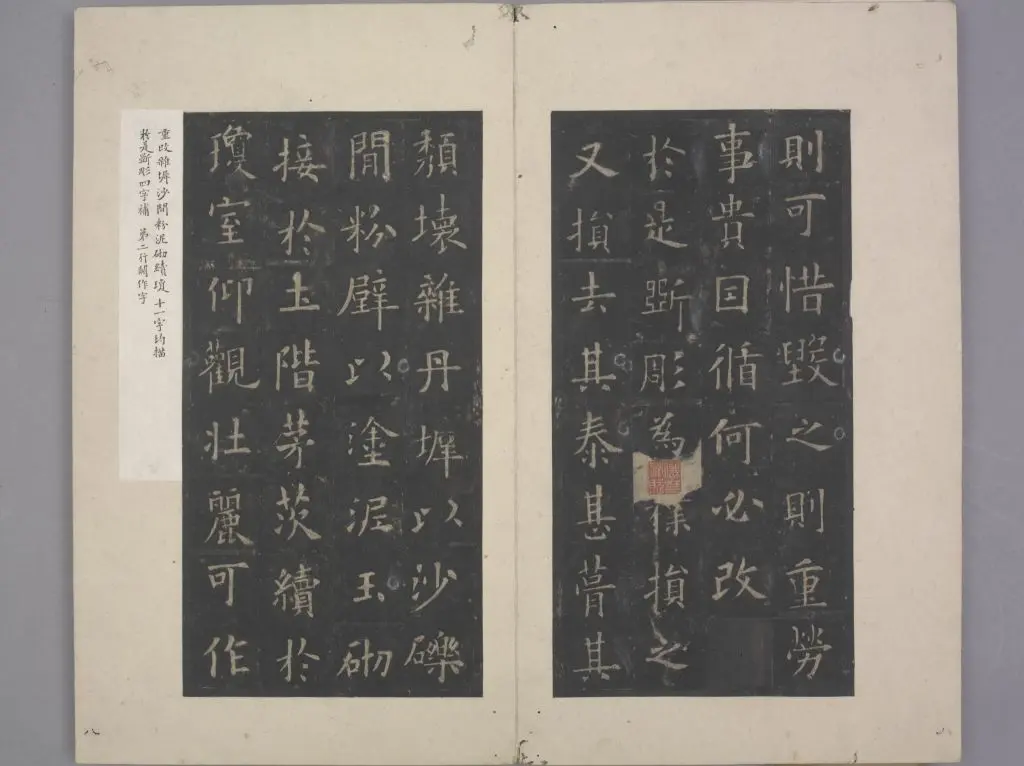 則可惜毀之則重勞
事貴因循何必改
於是斲彫為樸損之
又損去其泰甚葺其
頹壞雜丹墀以沙礫
閒粉壁以塗泥玉砌
接於土階茅茨續於
瓊室仰觀壯麗可作
重改雜墀沙閒粉泥砌續瓊十一字均描
於是斲彫四字補 第二行闕作字